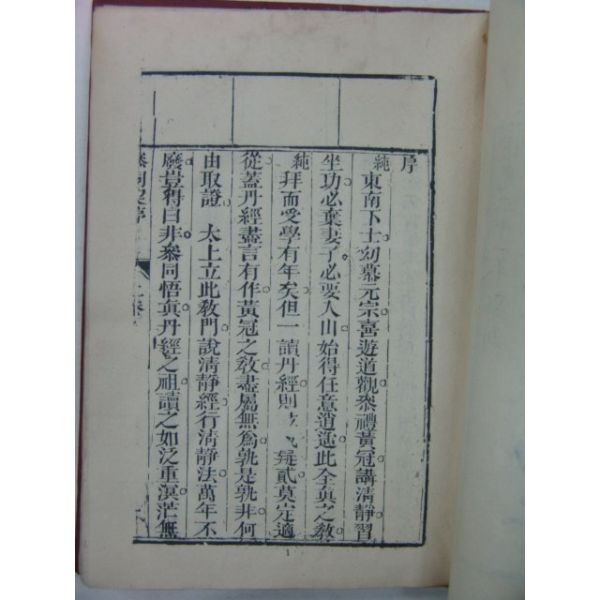 序
純東南下士幼慕元宗喜遊道觀叅禮黃冠講清靜習
坐功必棄妻子必要入山始得任意逍遙此全眞之敎
純拜而受學有年矣但一讀丹經則疑貳莫定適
從葢丹經盡言有作黃冠之敎盡屬無爲孰是孰非何
由取證太上立此敎門說清靜經行清靜法萬年不
廢豈得曰非叅同悟眞丹經之祖讀之如泛重溟茫無
叅同契序
1